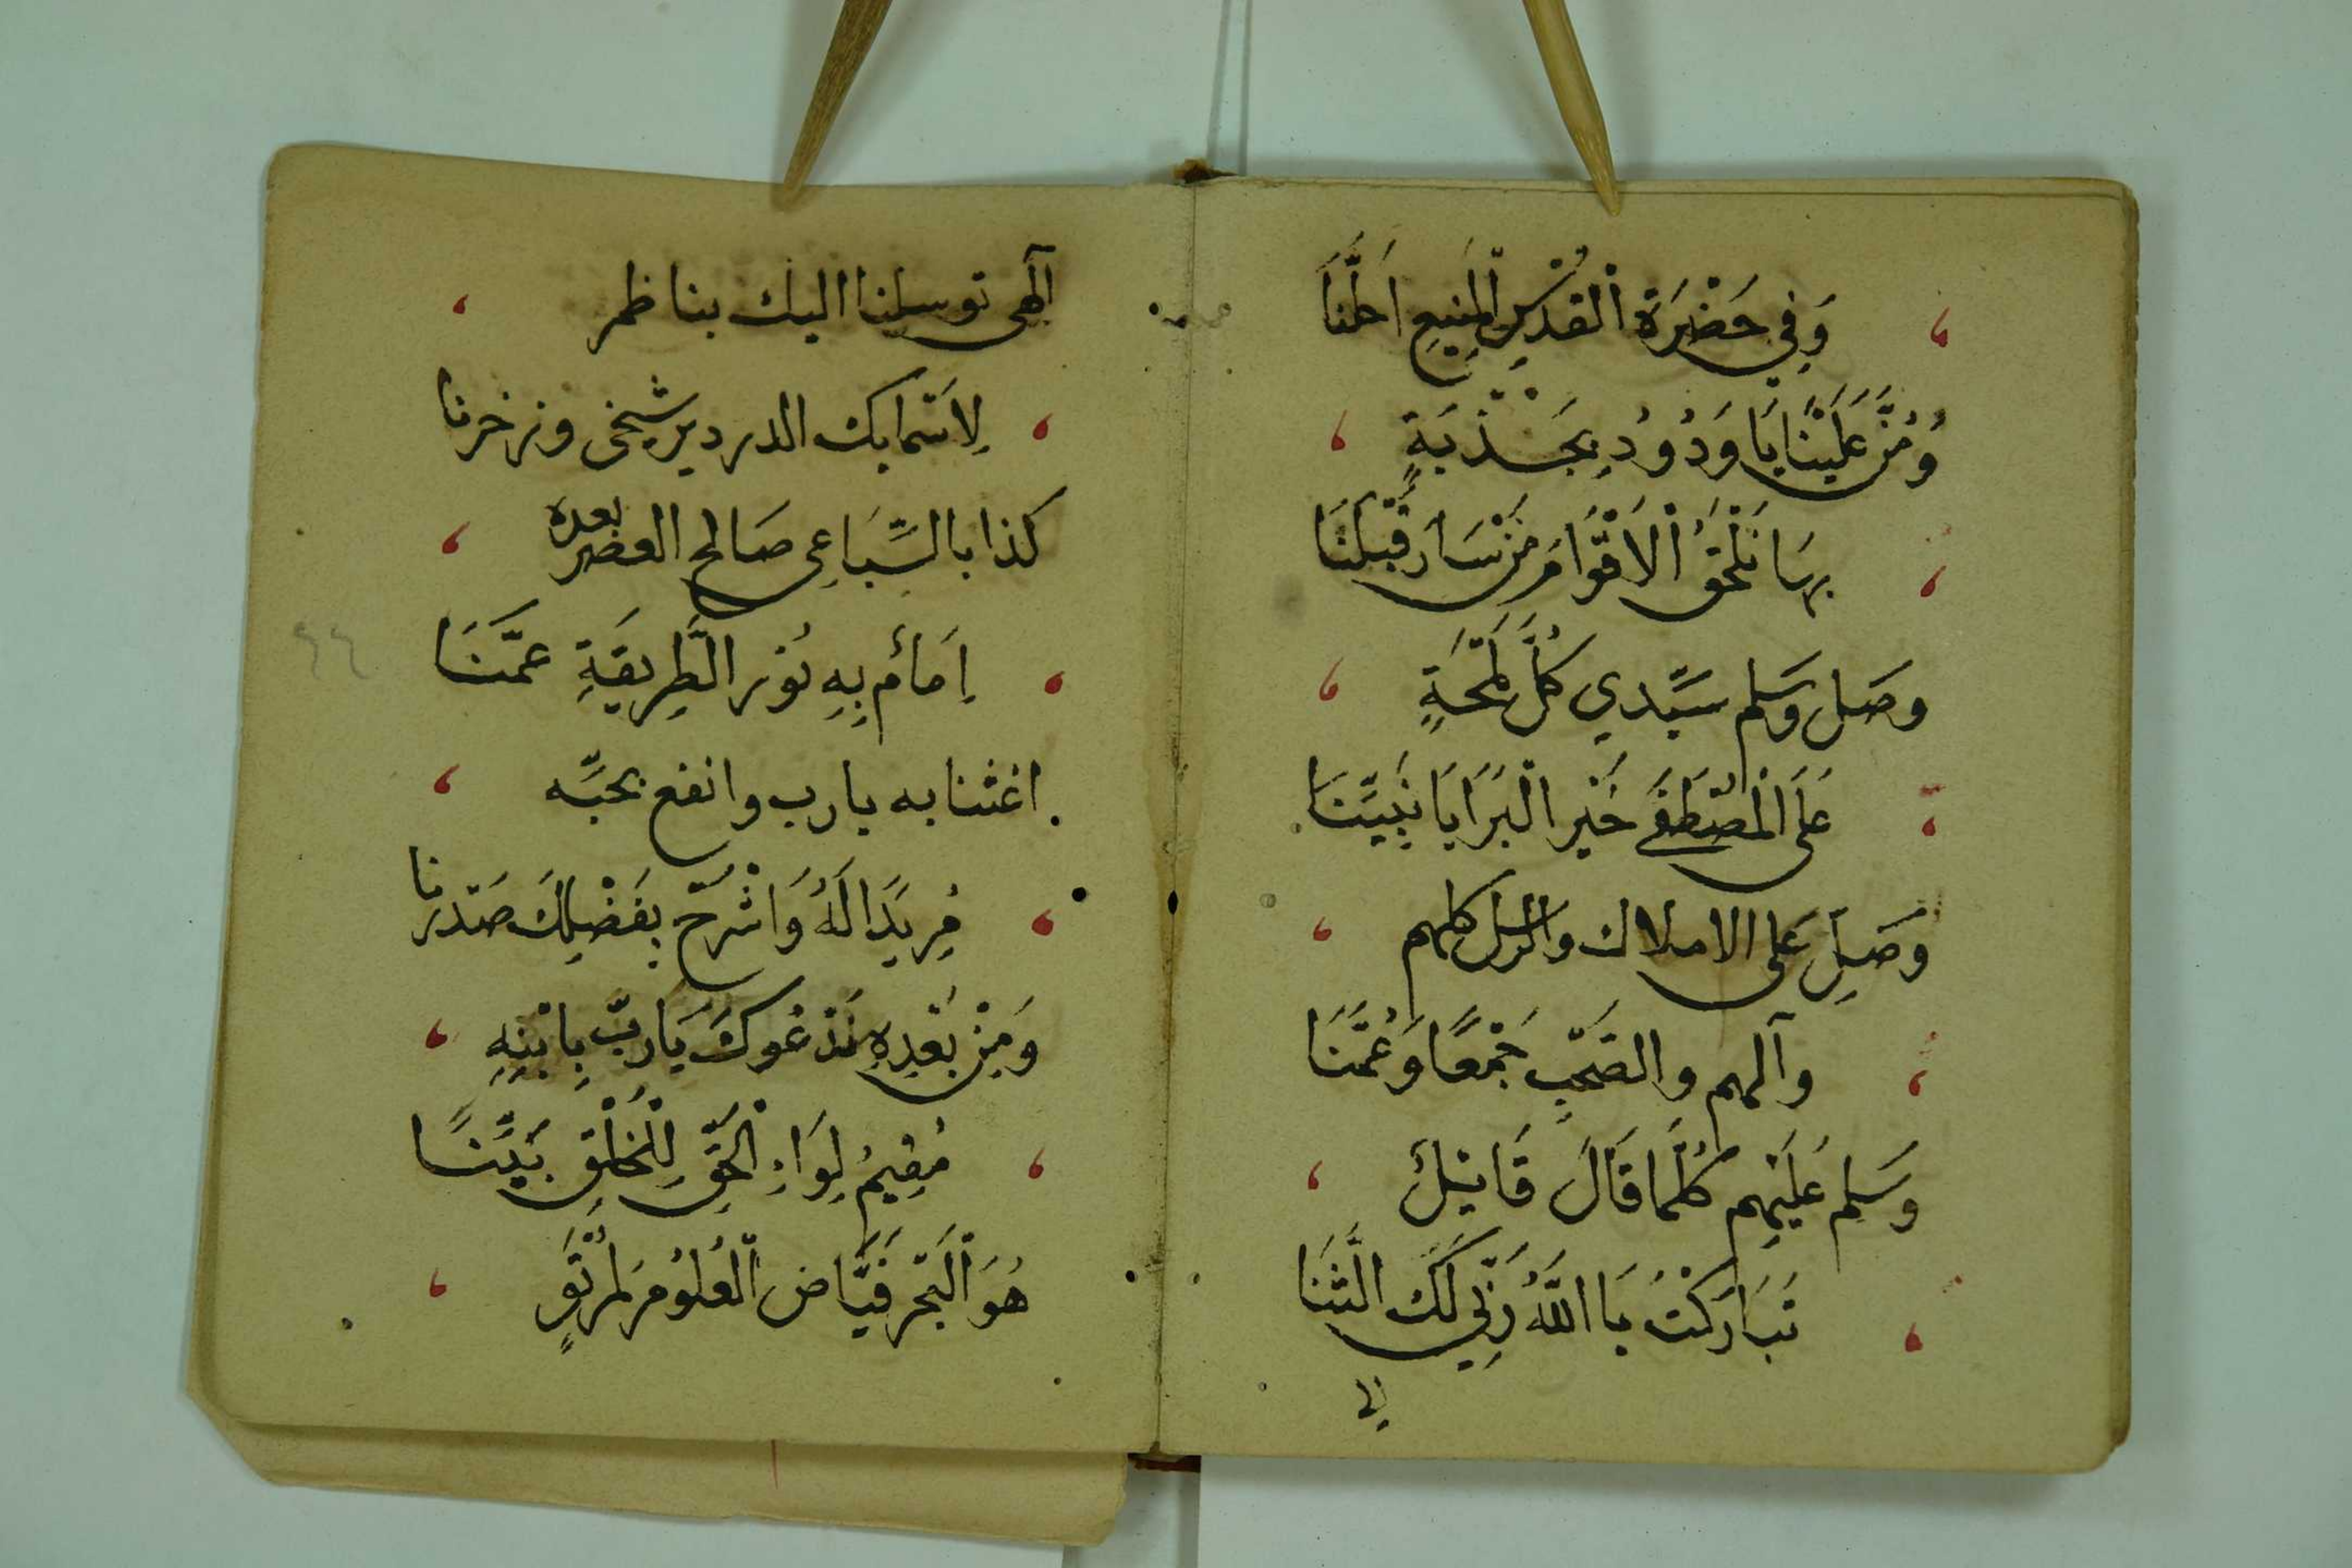 وَفِي حَضْرَةِ الْقُدْسِ الْمَنِيعِ اَحِلَّنَا
وَمُنَّ عَلَيْنَا يَا وَدُوُدِ بِجَذْبَةٍ
بِهَا نَلْحَقُ الْاَقْوَامَ مَنْ سَارَ قَبْلَنَا
وصَلِ وَسَلم سَيِّدي كُلَّ لَمْحَةٍ
عَلَى الْمُصْطَفَى خَيْرِ الْبَرَايَا نَبِيِّنَا
وَصَلِ عَلى الاملاك والرسل كلهم
وآلهم والصَحْبِ جَمْعًا وَعُمَّنَا
وَسَلِم عَلَيْهِم كُلَّمَا قَالَ قَائِلُ
تَبَارَكْتَ يَا اللَّهُ رَبِّي لَكَ الثَّنَا
الهى
آلهى توسلنا اليك بناظم
لِاسَمائك الدردير شيخى وذخرنا
كذا بالسِّبَاعِى صَالح العصر بعده
اِمَامُ بِهِ نُورُ الطَّرِيقَةِ عَمَّنَا
اغثنا به يارب وانفع بحبِّه
مُرِيدًا لَهُ وَاشْرَحْ بِفَضْلِكَ صَدْرنا
وَمِنْ بَعْدِهِ نَدْعُوكَ يَارَبِّ بِابْنِهِ
مُقِيمُ لِوَاءِ الْحَقِّ لِلْخَلْقِ بَيِّنًا
هُوَ الْبَحْرُ فَيَّاضُ الْعُلُوُمِ لمرتَوٍ
٦٦